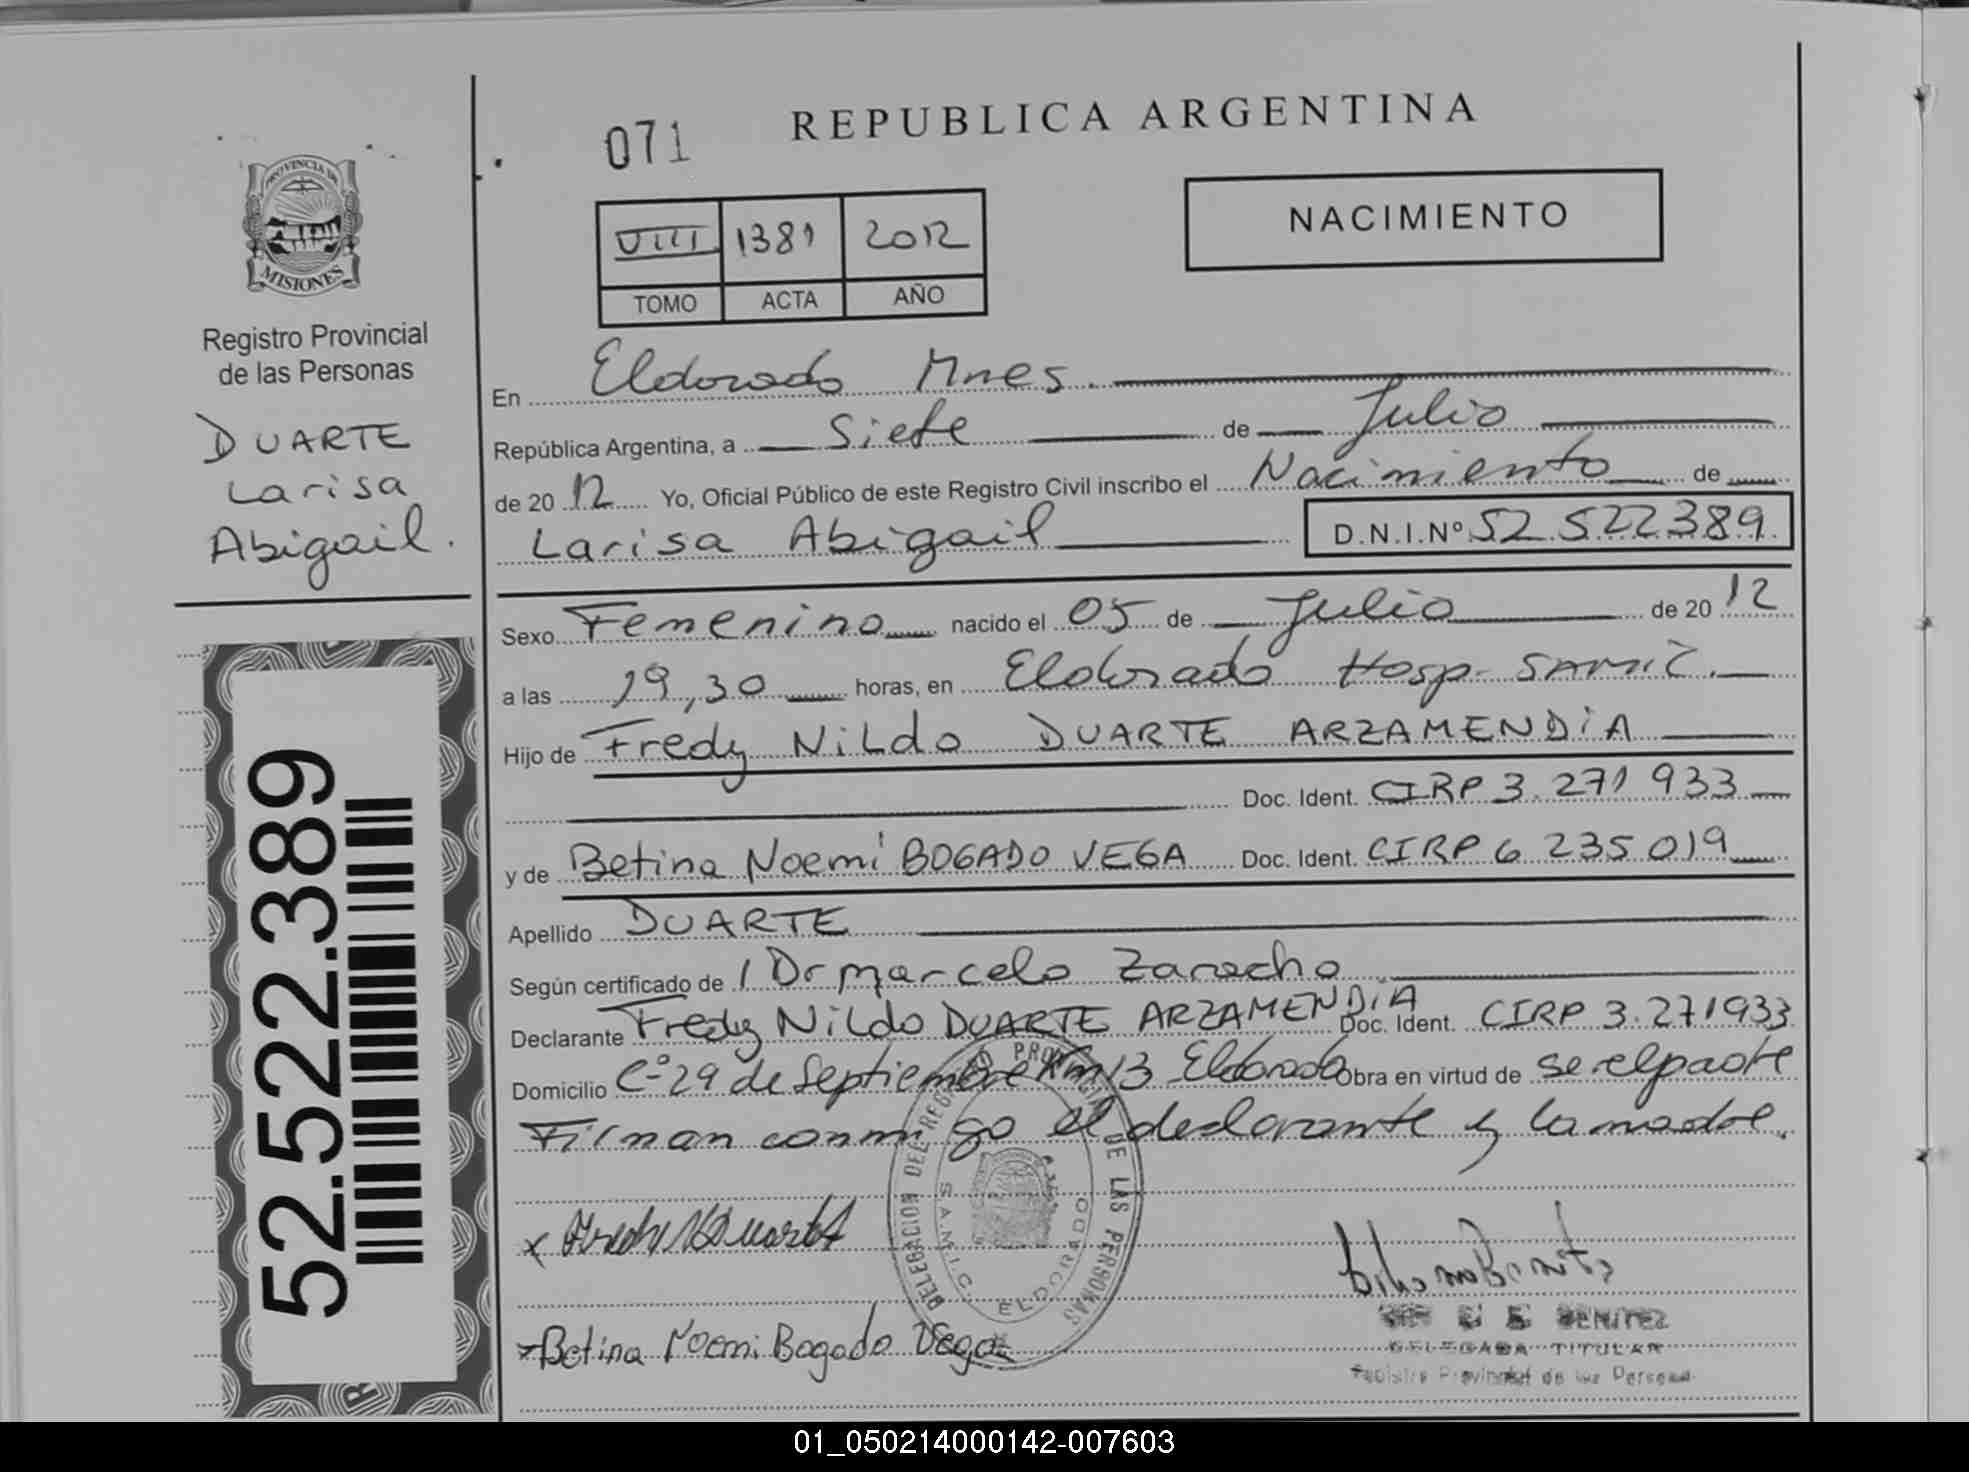 REPUBLICA ARGENTINA
071
PROVINCIA DE
MISIONES
Registro Provincial
de las Personas
DUARTE
Larisa
Abigail.
VIII 1381 2012
TOMO ACTA AÑO
NACIMIENTO
En Eldorado Mnes.
República Argentina, a Siete de Julio
de 2012 Yo, Oficial Público de este Registro Civil inscribo el Nacimiento de
Larisa Abigail D.N.I.Nº 52.522.389
Sexo Femenino nacido el 05 de Julio de 2012
a las 19,30 horas, en Eldorado Hosp. SAMIC.
Hijo de Fredy Nildo DUARTE ARZAMENDiA
Doc. Ident. CIRP 3.271 933
y de Betina Noemí BOGADO VEGA Doc. Ident. CIRP 6 235 019
Apellido DUARTE
Según certificado de Dr marcelo Zaracho
Declarante Fredy Nildo DUARTE ARZAMENDiA Doc. Ident. CIRP 3.271933
Domicilio Cº 29 de Septiembre Km 13 Eldorado Obra en virtud de ser el padre
Firman conmigo el declarante y la madre.
52.522.389
DELEGACION DEL REGISTRO PROVINCIAL DE LAS PERSONAS
S.A.M.I.C. ELDORADO
Betina Noemi Bogado Vega
BENITEZ
DELEGADA TITULAR
Registro Provincial de las Personas
01_050214000142-007603